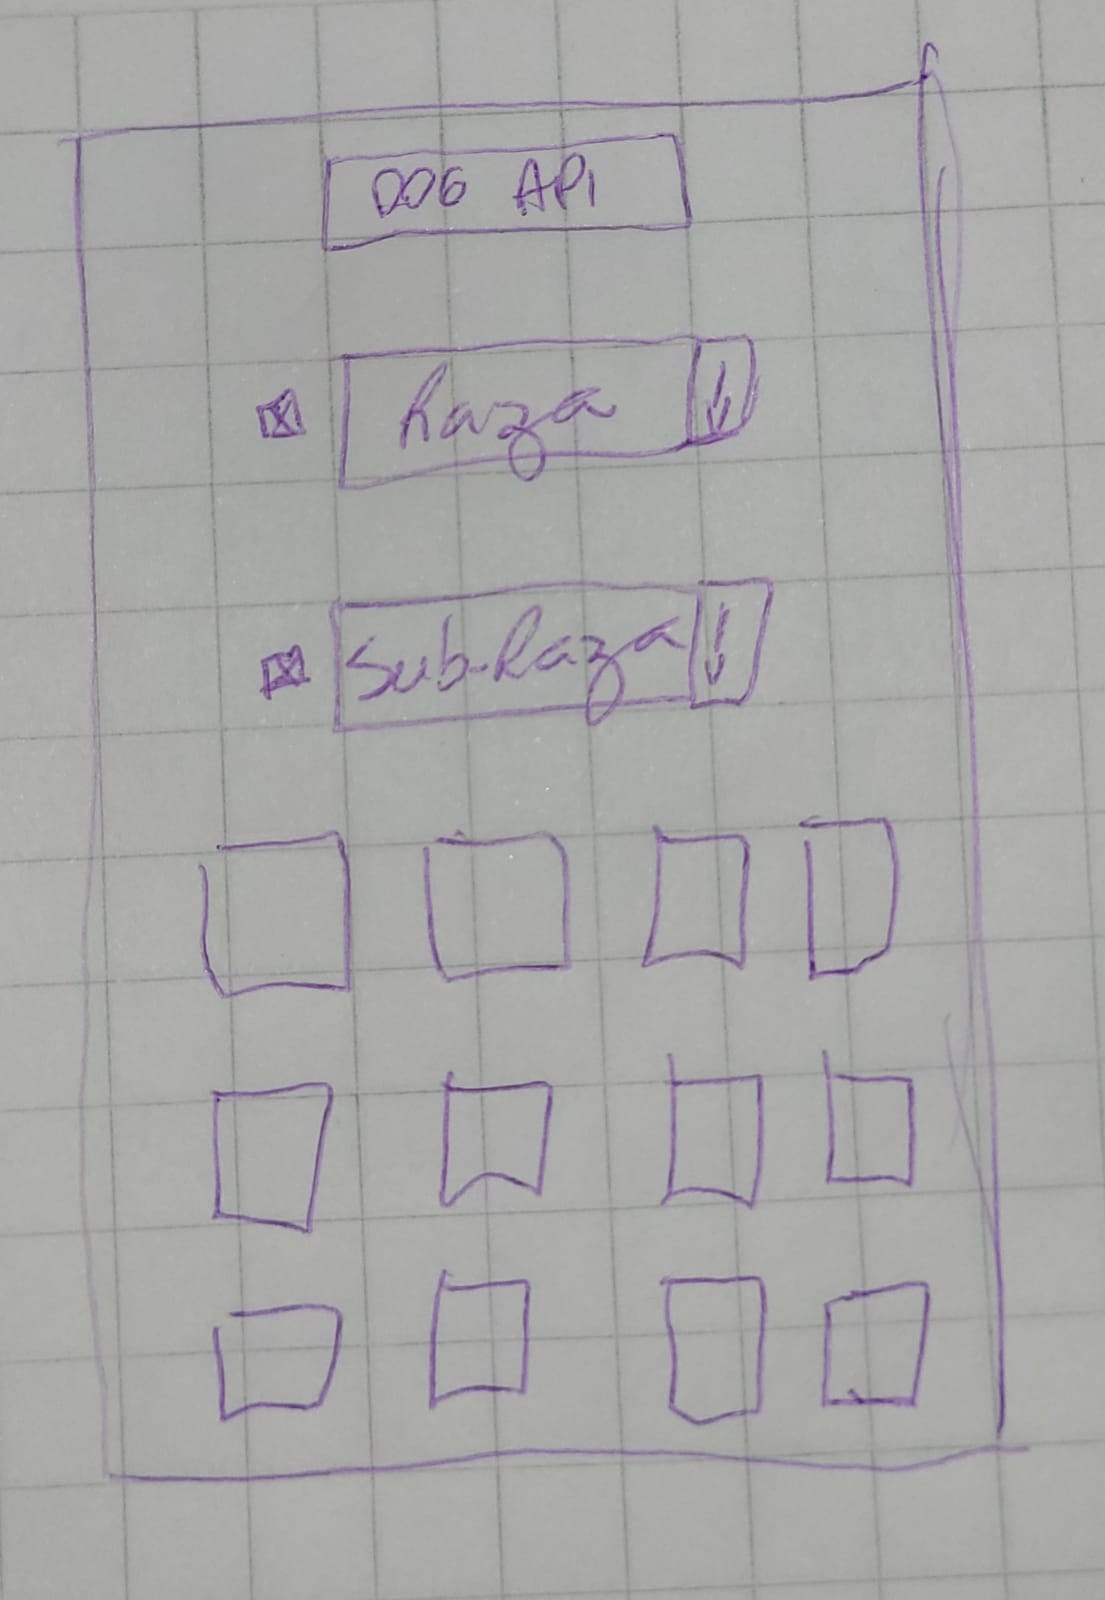 DOG API
Raza
Sub-Raza